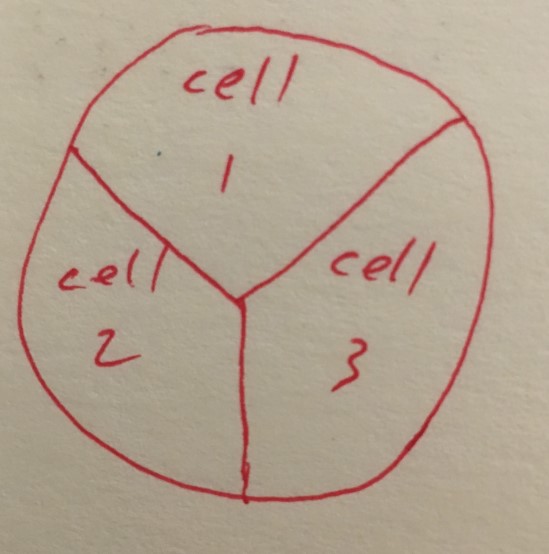 cell
1
cell
2
cell
3